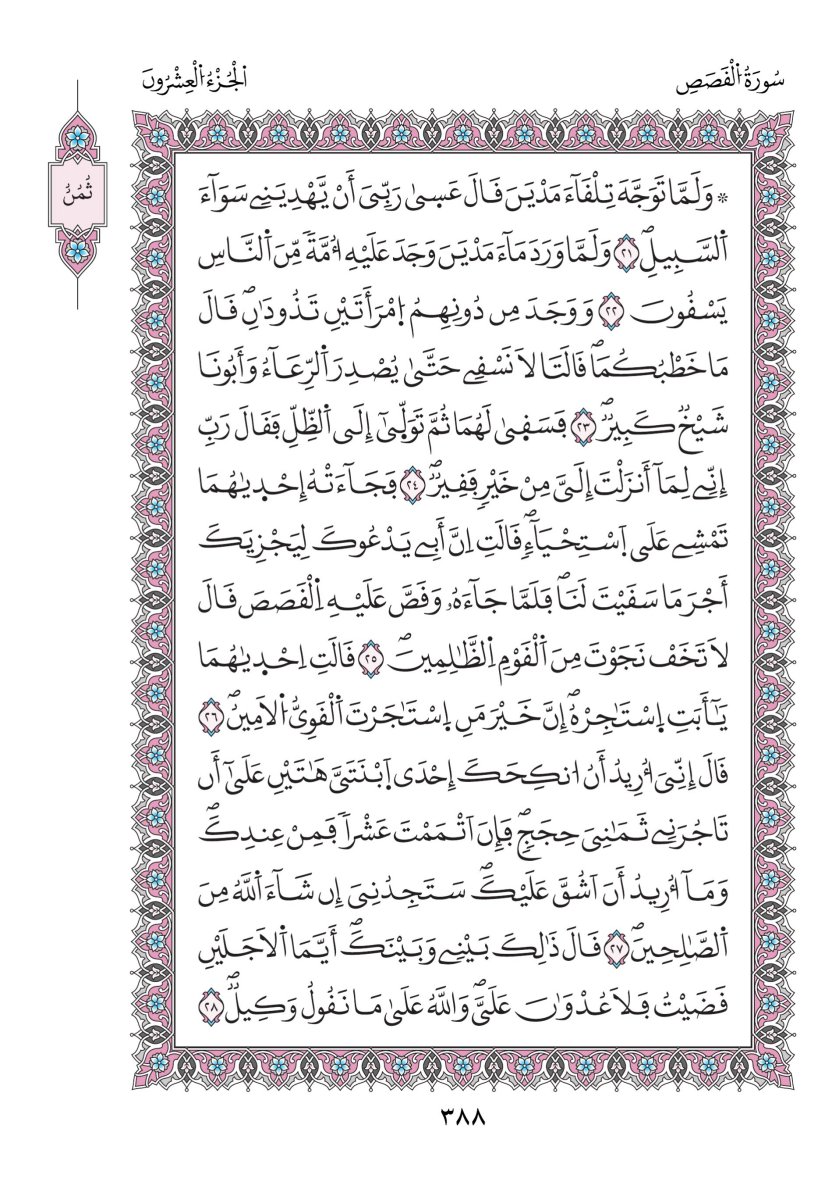 سُورَةُ اُ۬لْقَصَصِ
اُ۬لْجُزْءُ اُ۬لْعِشْرُونَ
ثُمُنٌ
* وَلَمَّا تَوَجَّهَ تِلْقَآءَ مَدْيَنَ قَالَ عَس۪يٰ رَبِّيَ أَنْ يَّهْدِيَنِے سَوَآءَ
اَ۬لسَّبِيلِۖ ٢١ وَلَمَّا وَرَدَ مَآءَ مَدْيَنَ وَجَدَ عَلَيْهِ أُمَّةٗ مِّنَ اَ۬لنَّاسِ
يَسْقُونَ ٢٢ وَوَجَدَ مِن دُونِهِمُ اُ۪مْرَأَتَيْنِ تَذُودَٰنِۖ قَالَ
مَا خَطْبُكُمَاۖ قَالَتَا لَا نَسْقِے حَتَّىٰ يُصْدِرَ اَ۬لرِّعَآءُ وَأَبُونَا
شَيْخٞ كَبِيرٞۖ ٢٣ فَسَق۪يٰ لَهُمَا ثُمَّ تَوَلّ۪ىٰٓ إِلَى اَ۬لظِّلِّ فَقَالَ رَبِّ
إِنِّے لِمَآ أَنزَلْتَ إِلَيَّ مِنْ خَيْرٖ فَقِيرٞۖ ٢٤ فَجَآءَتْهُ إِحْد۪يٰهُمَا
تَمْشِے عَلَى اَ۪سْتِحْيَآءٖۖ قَالَتِ اِنَّ أَبِے يَدْعُوكَ لِيَجْزِيَكَ
أَجْرَ مَا سَقَيْتَ لَنَاۖ فَلَمَّا جَآءَهُۥ وَقَصَّ عَلَيْهِ اِ۬لْقَصَصَ قَالَ
لَا تَخَفْ نَجَوْتَ مِنَ اَ۬لْقَوْمِ اِ۬لظَّٰلِمِينَۖ ٢٥ قَالَتِ اِحْد۪يٰهُمَا
يَٰٓأَبَتِ اِ۪سْتَٰجِرْهُۖ إِنَّ خَيْرَ مَنِ اِ۪سْتَٰجَرْتَ اَ۬لْقَوِيُّ اُ۬لَامِينُۖ ٢٦
قَالَ إِنِّيَ أُرِيدُ أَنُ انكِحَكَ إِحْدَى اَ۪بْنَتَيَّ هَٰتَيْنِ عَلَىٰٓ أَن
تَاجُرَنِے ثَمَٰنِيَ حِجَجٖۖ فَإِنَ اَتْمَمْتَ عَشْراٗ فَمِنْ عِندِكَۖ
وَمَآ أُرِيدُ أَنَ اَشُقَّ عَلَيْكَۖ سَتَجِدُنِيَ إِن شَآءَ اَ۬للَّهُ مِنَ
اَ۬لصَّٰلِحِينَۖ ٢٧ قَالَ ذَٰلِكَ بَيْنِے وَبَيْنَكَۖ أَيَّمَا اَ۬لَاجَلَيْنِ
قَضَيْتُ فَلَا عُدْوَٰنَ عَلَيَّۖ وَاللَّهُ عَلَىٰ مَا نَقُولُ وَكِيلٞۖ ٢٨
٣٨٨